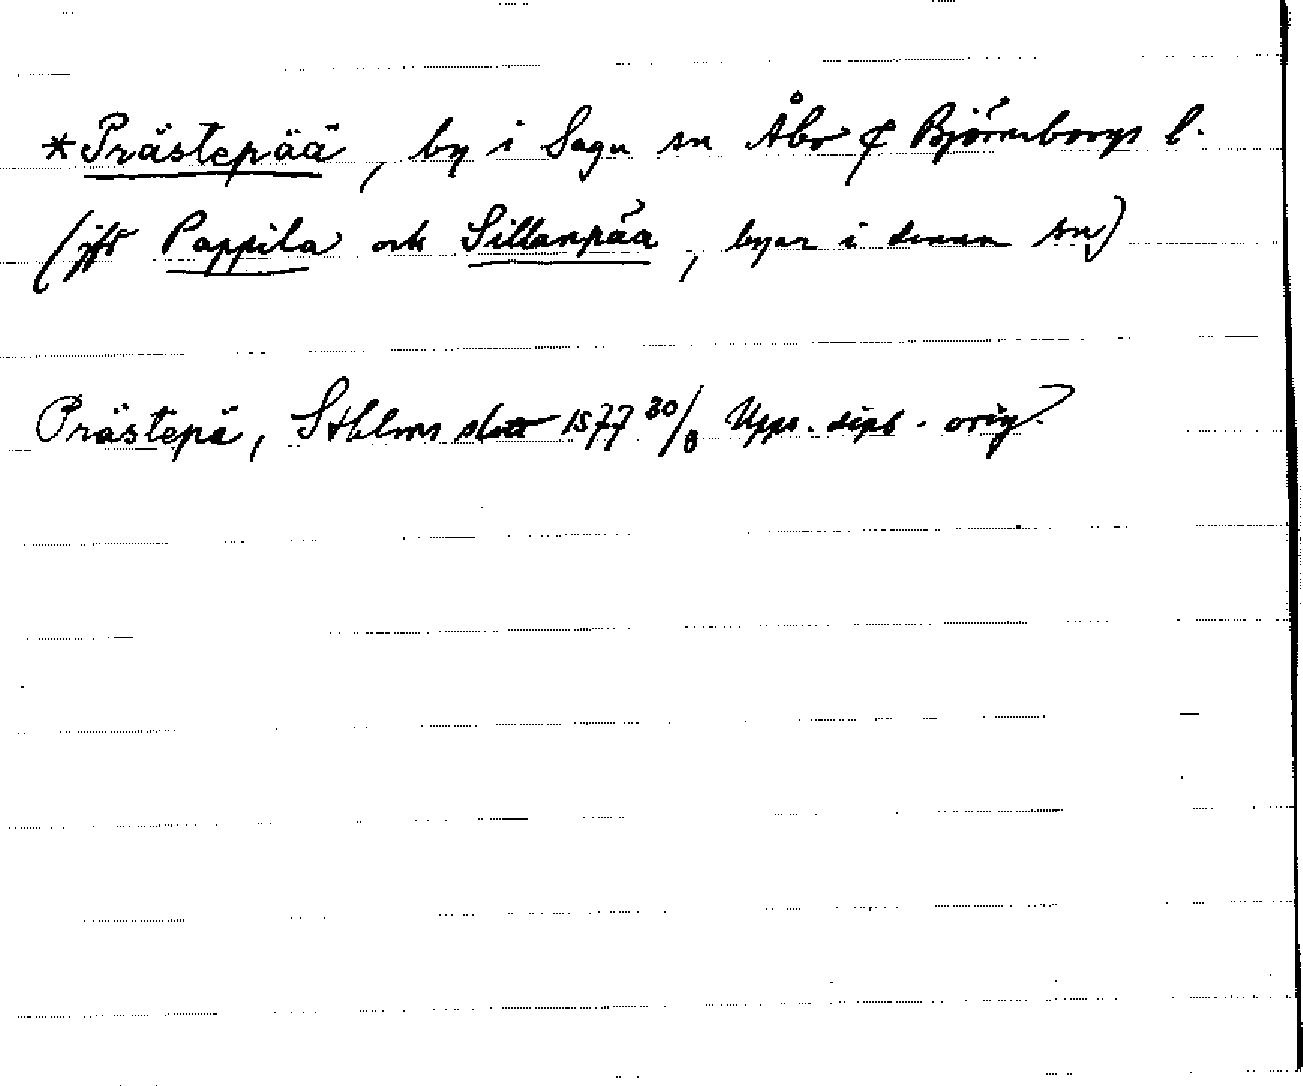 *Prästepää, by i Sagu sn Åbo & Björneborgs l.
(jfr Pappila och Sillanpää, byar i denna sn)
Prästepä, Sthlms slott 1577 30/8 Upps. dipl. orig.